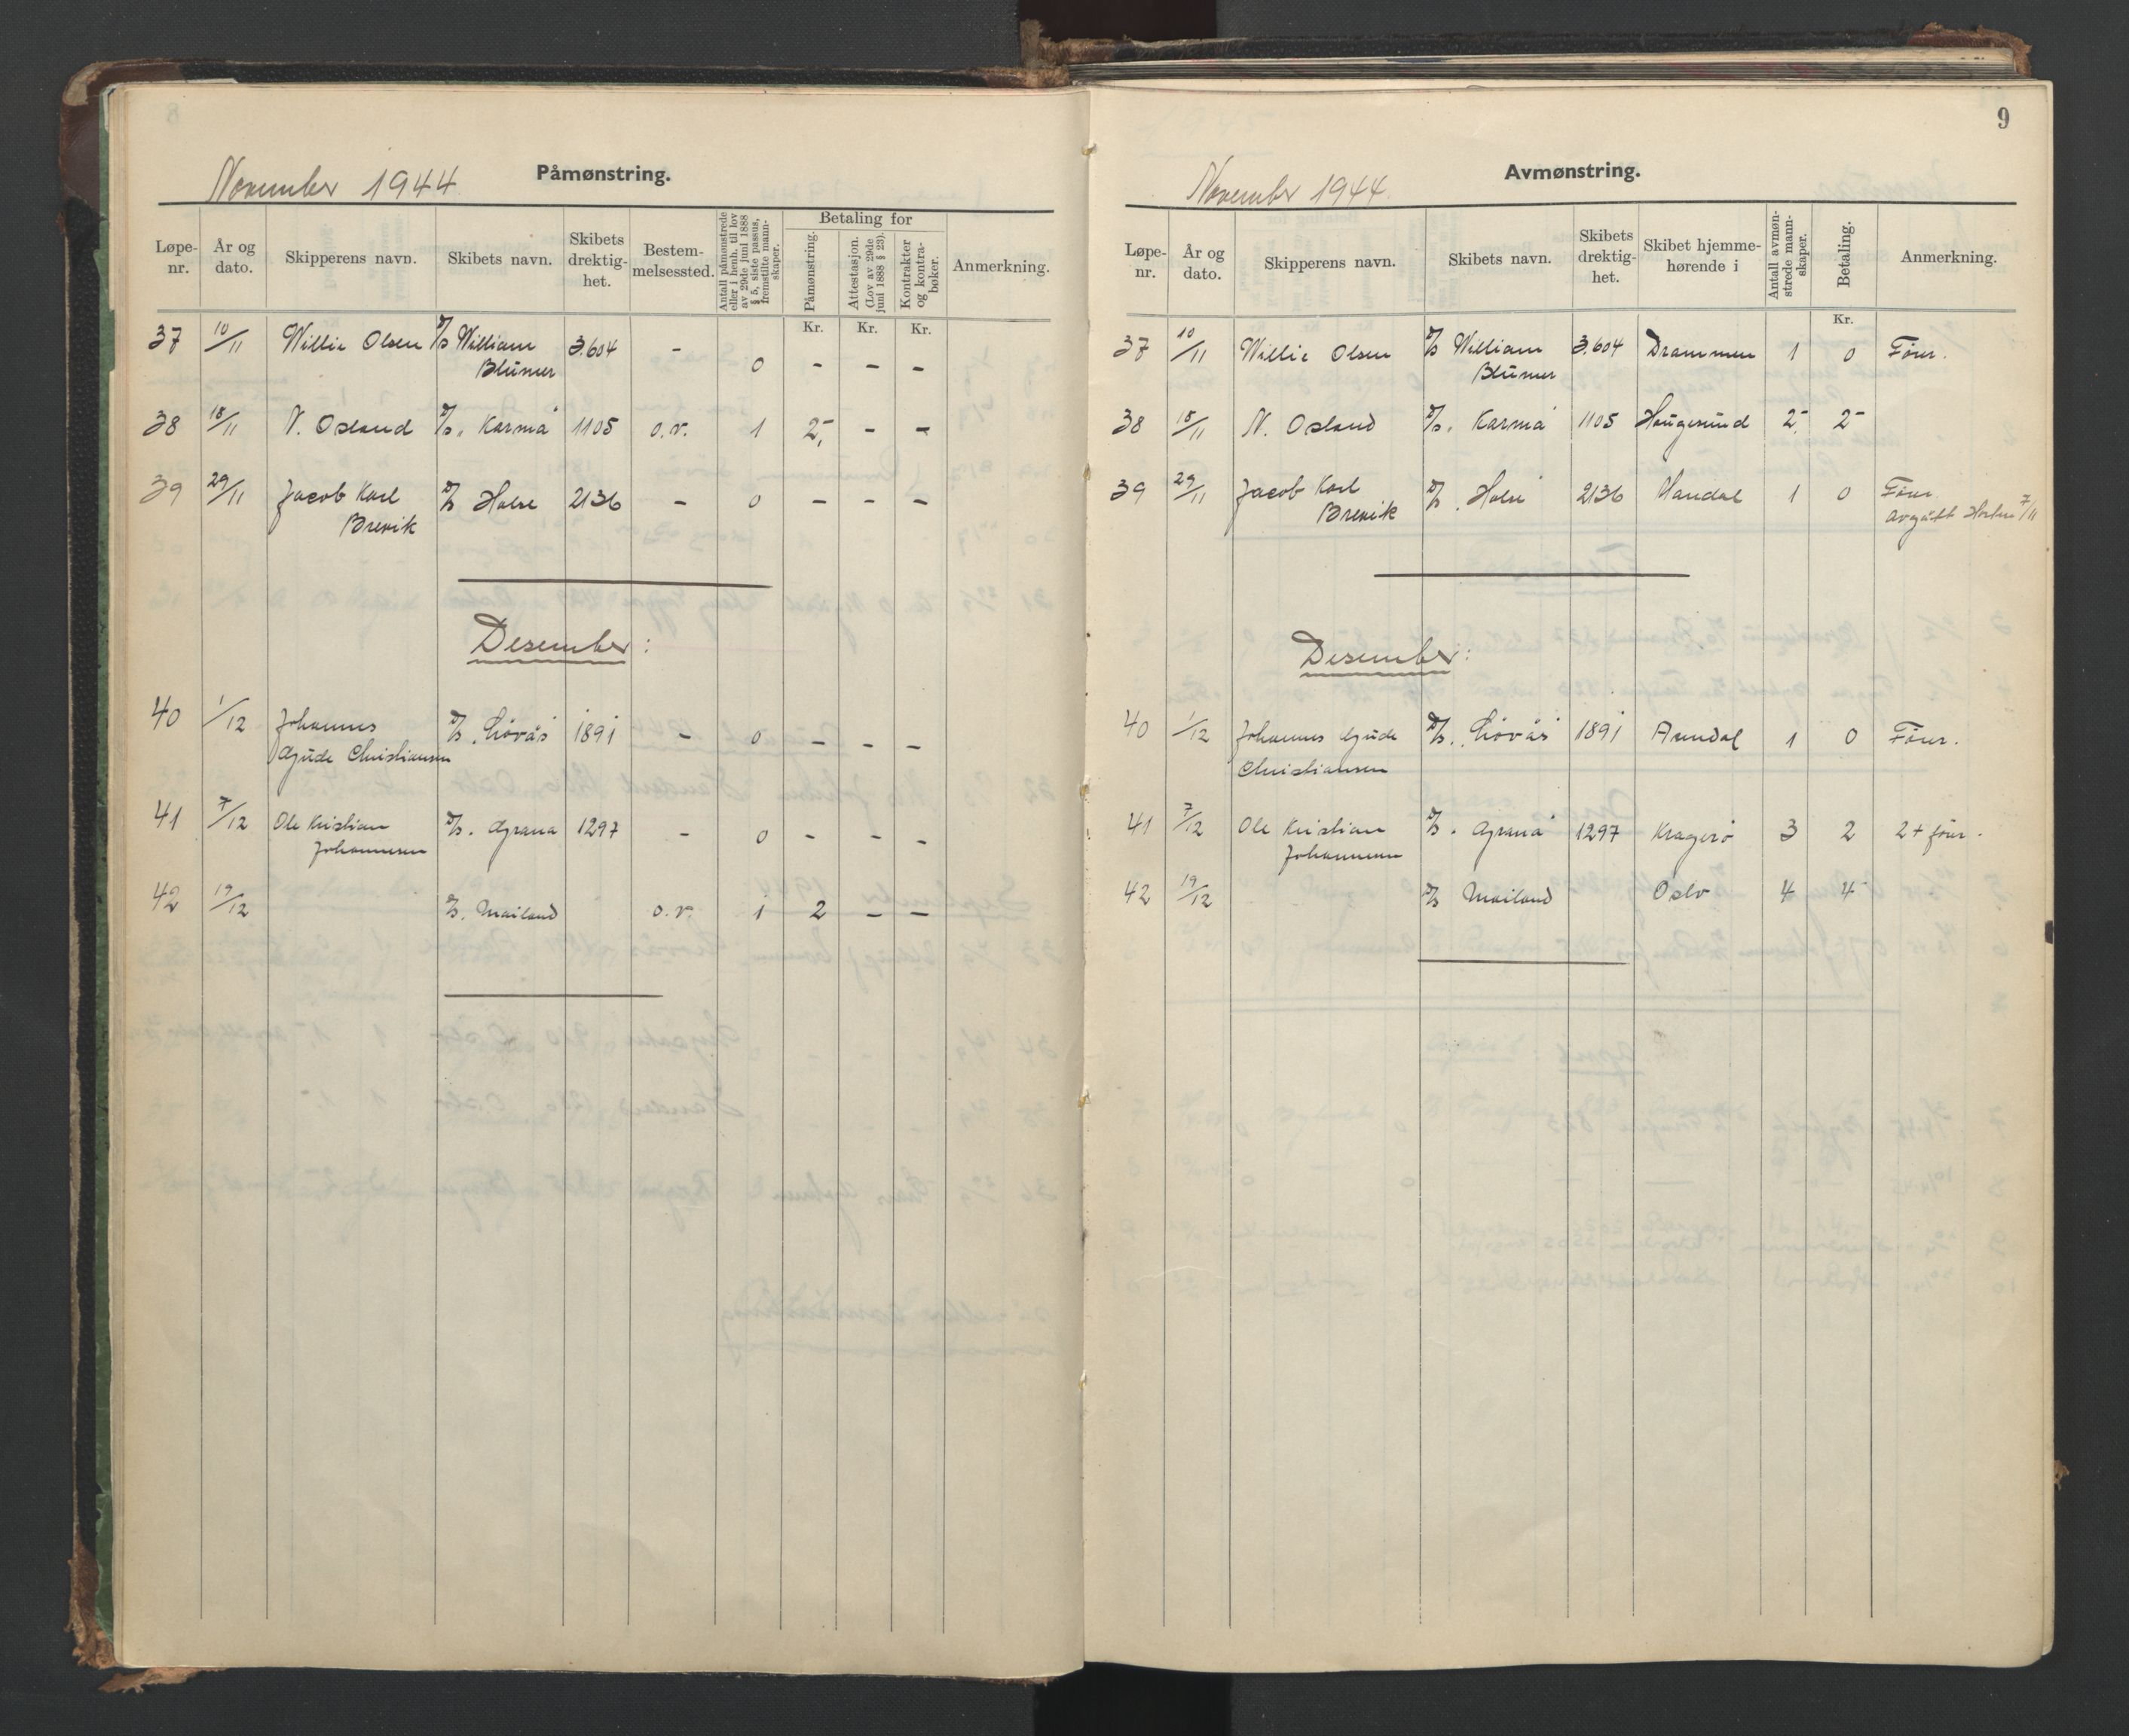 November 1944 Påmønstring.
Løpe-nr. År og dato. Skipperens navn. Skibets navn. Skibets drektig-het. Bestem-melsessted. Antall påmønstrede eller i henh. til lov av 29de juni 1888 § 5, siste passus, fremstilte mann-skaper. Betaling for Påmønstring. Attestasjon. (Lov av 29de juni 1888 § 23). Kontrakter og kontra-bøker. Anmerkning.
Kr. Kr. Kr.
37 10/11 Willie Olsen D/S William 3.604 -
Blümer 0 - - -
38 18/11 N. Osland D/S. Karmå 1105 o.v. 1 2,- - -
39 29/11 Jacob Karl D/S Halse 2136 - 0 - - -
Brevik
Desember:
40 1/12 Johannes D/S. Lövås 1891 - 0 - - -
Gjude Christiansen
41 7/12 Ole Kristian D/S. Granå 1297 - 0 - - -
Johannesen
42 19/12 D/S. Mailand o.v. 1 2 - -
9
November 1944. Avmønstring.
Løpe-nr. År og dato. Skipperens navn. Skibets navn. Skibets drektig-het. Skibet hjemme-hørende i Antall avmøn-strede mann-skaper. Betaling. Anmerkning.
Kr.
37 10/11 Willie Olsen D/S William 3.604 Drammen 1 0 Förer.
Blümer
38 18/11 N. Osland D/S. Karmå 1105 Haugesund 2 2-
39 29/11 Jacob Karl D/S. Halse 2136 Mandal 1 0 Förer
Brevik avgått Horten 7/11
Desember:
40 1/12 Johannes Gjude D/S. Lövås 1891 Arendal 1 0 Förer.
Christiansen
41 7/12 Ole Kristian D/S. Granå 1297 Kragerö 3 2 2 + förer.
Johannesen
42 19/12 D/S Mailand Oslo 4 4-